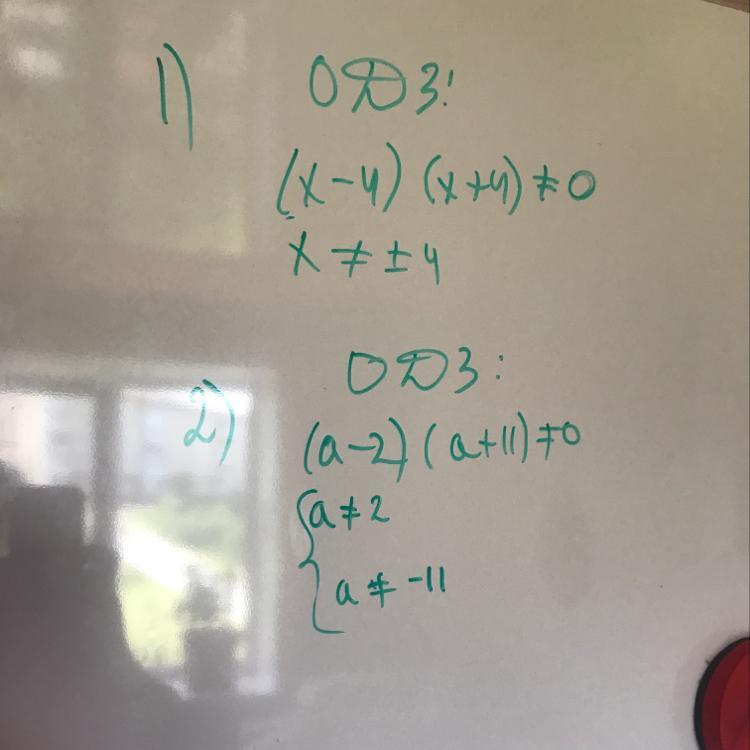 1) ОДЗ:
(x-4) (x+4) ≠ 0
x ≠ ± 4
2) ОДЗ:
(a-2) (a+11) ≠ 0
{ a ≠ 2
a ≠ -11